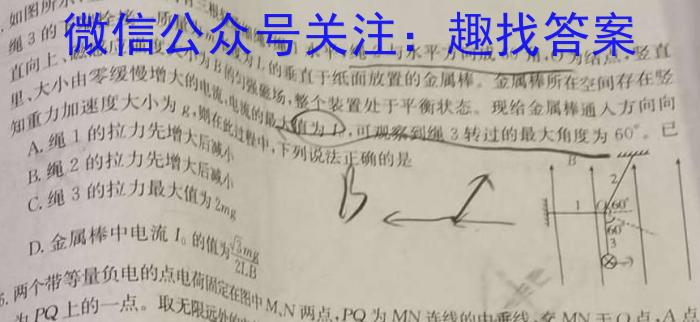 微信公众号关注：趣找答案
如图所示
绳3的
为L的垂直于纸面放置的金属棒。金属棒所在空间存在竖
直向上、
为B的匀强磁场，整个装置处于平衡状态。现给金属棒通入方向向
里、大小由零缓慢增大的电流，电流的最大值为I₀，可观察到绳3转过的最大角度为60°。已
知重力加速度大小为g，则在此过程中，下列说法正确的是
A.绳1的拉力先增大后减小
B.绳2的拉力先增大后减小
C.绳3的拉力最大值为2mg
D.金属棒中电流I₀的值为√3mg/2LB
B
B
1
2
O
60°
60°
3
两个带等量负电的点电荷固定在图中M、N两点，PQ为MN连线的中垂线，交MN于O点，A点
为PQ上的一点。取无限远处的